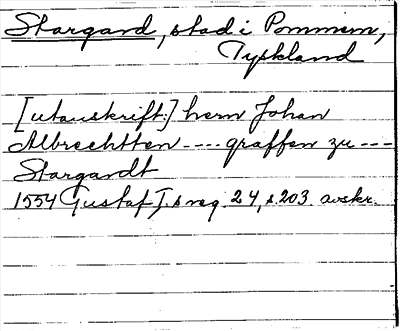 Stargard, stad i Pommern,
Tyskland
[utanskrift:] hern Johan
Albrechtten ---- graffen zu ---
Stargardt
1554 Gustaf I.s reg. 24, s. 203. avskr.